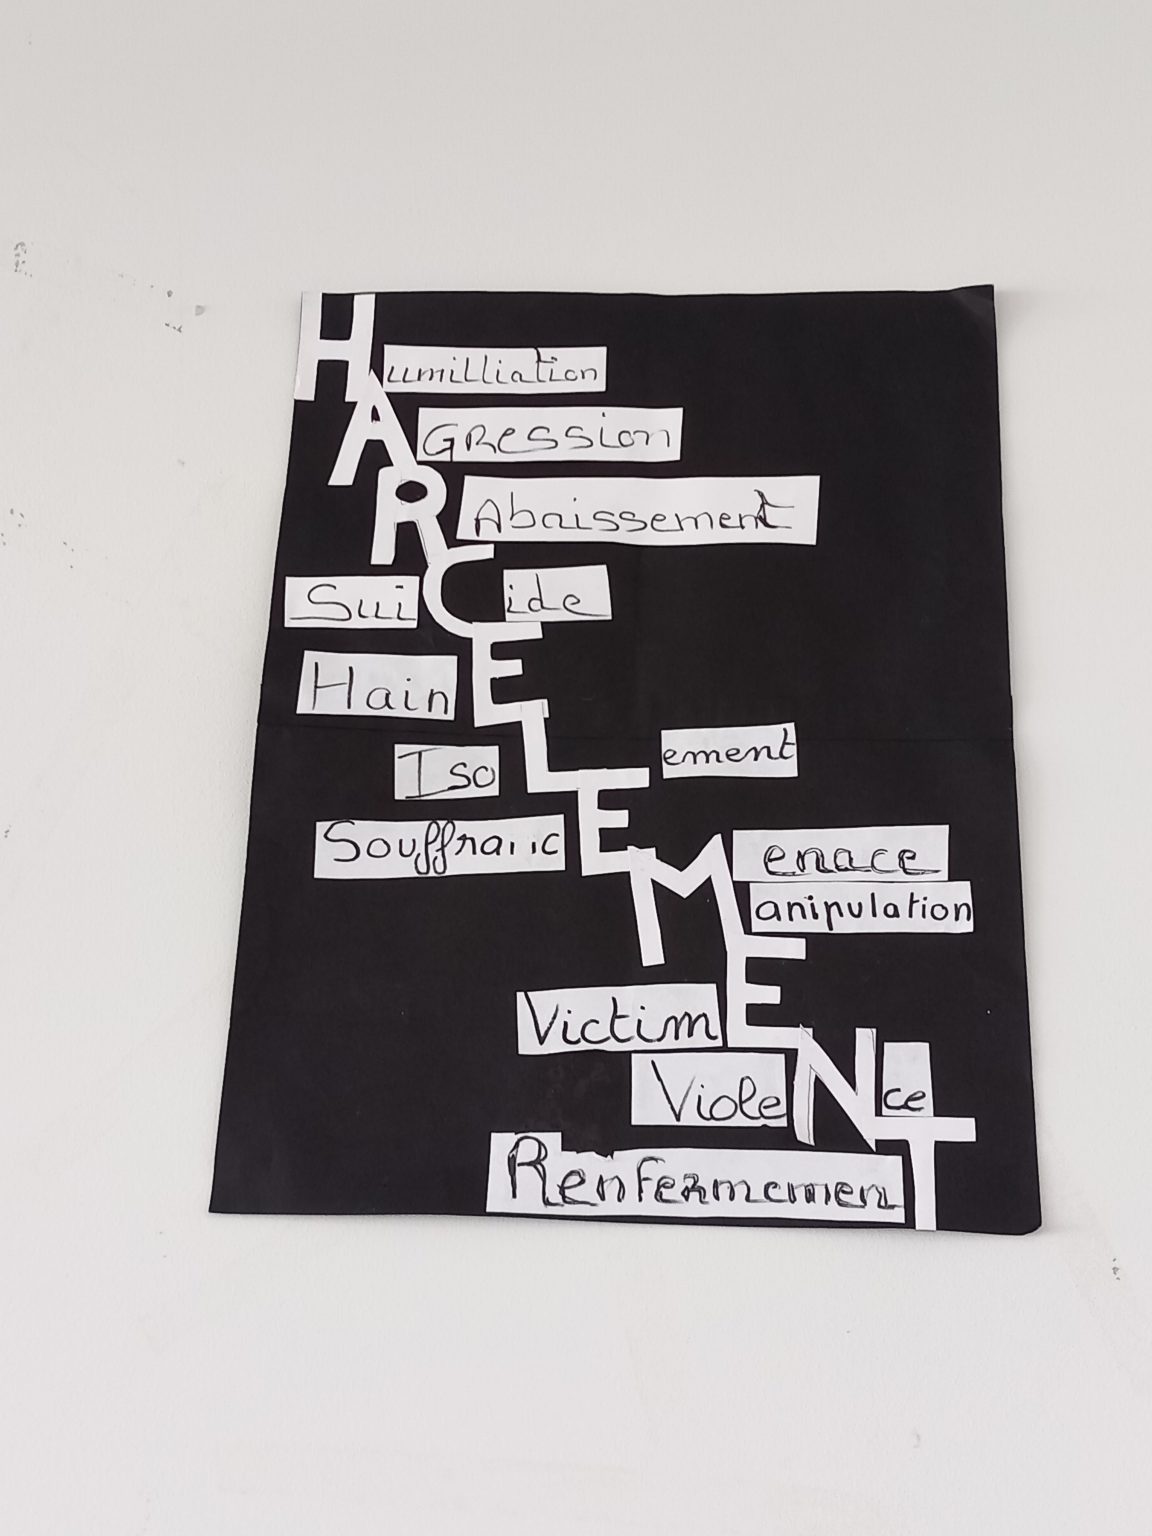 Humilliation
AGRession
R Abaissement
SuiCide
HainE
IsoLement
SouffrancE
Menace
Manipulation
VictimE
VioleNce
RenfermemenT